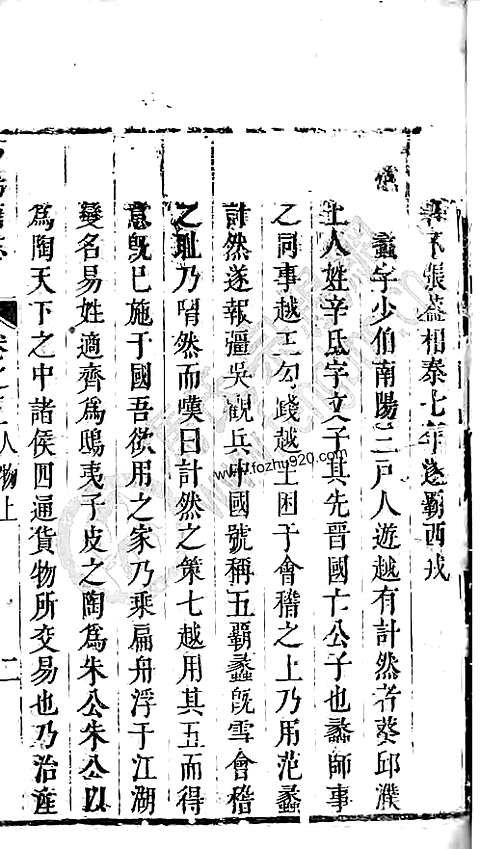 暑不張蓋相秦七年遂覇西戎
蠡字少伯南陽三戸人遊越有計然者葵邱濮
上人姓辛氏字文子其先晉國亡公子也蠡師事
之同事越王勾踐越王困于會稽之上乃用范蠡
計然遂報彊吳觀兵中國號稱五覇蠡旣雪會稽
之耻乃喟然而嘆曰計然之策七越用其五而得
意旣已施于國吾欲用之家乃乘扁舟浮于江湖
變名易姓適齊爲鴟夷子皮之陶爲朱公朱公以
爲陶天下之中諸侯四通貨物所交易也乃治產
卷之三人物上
二
www.fozhu920.com